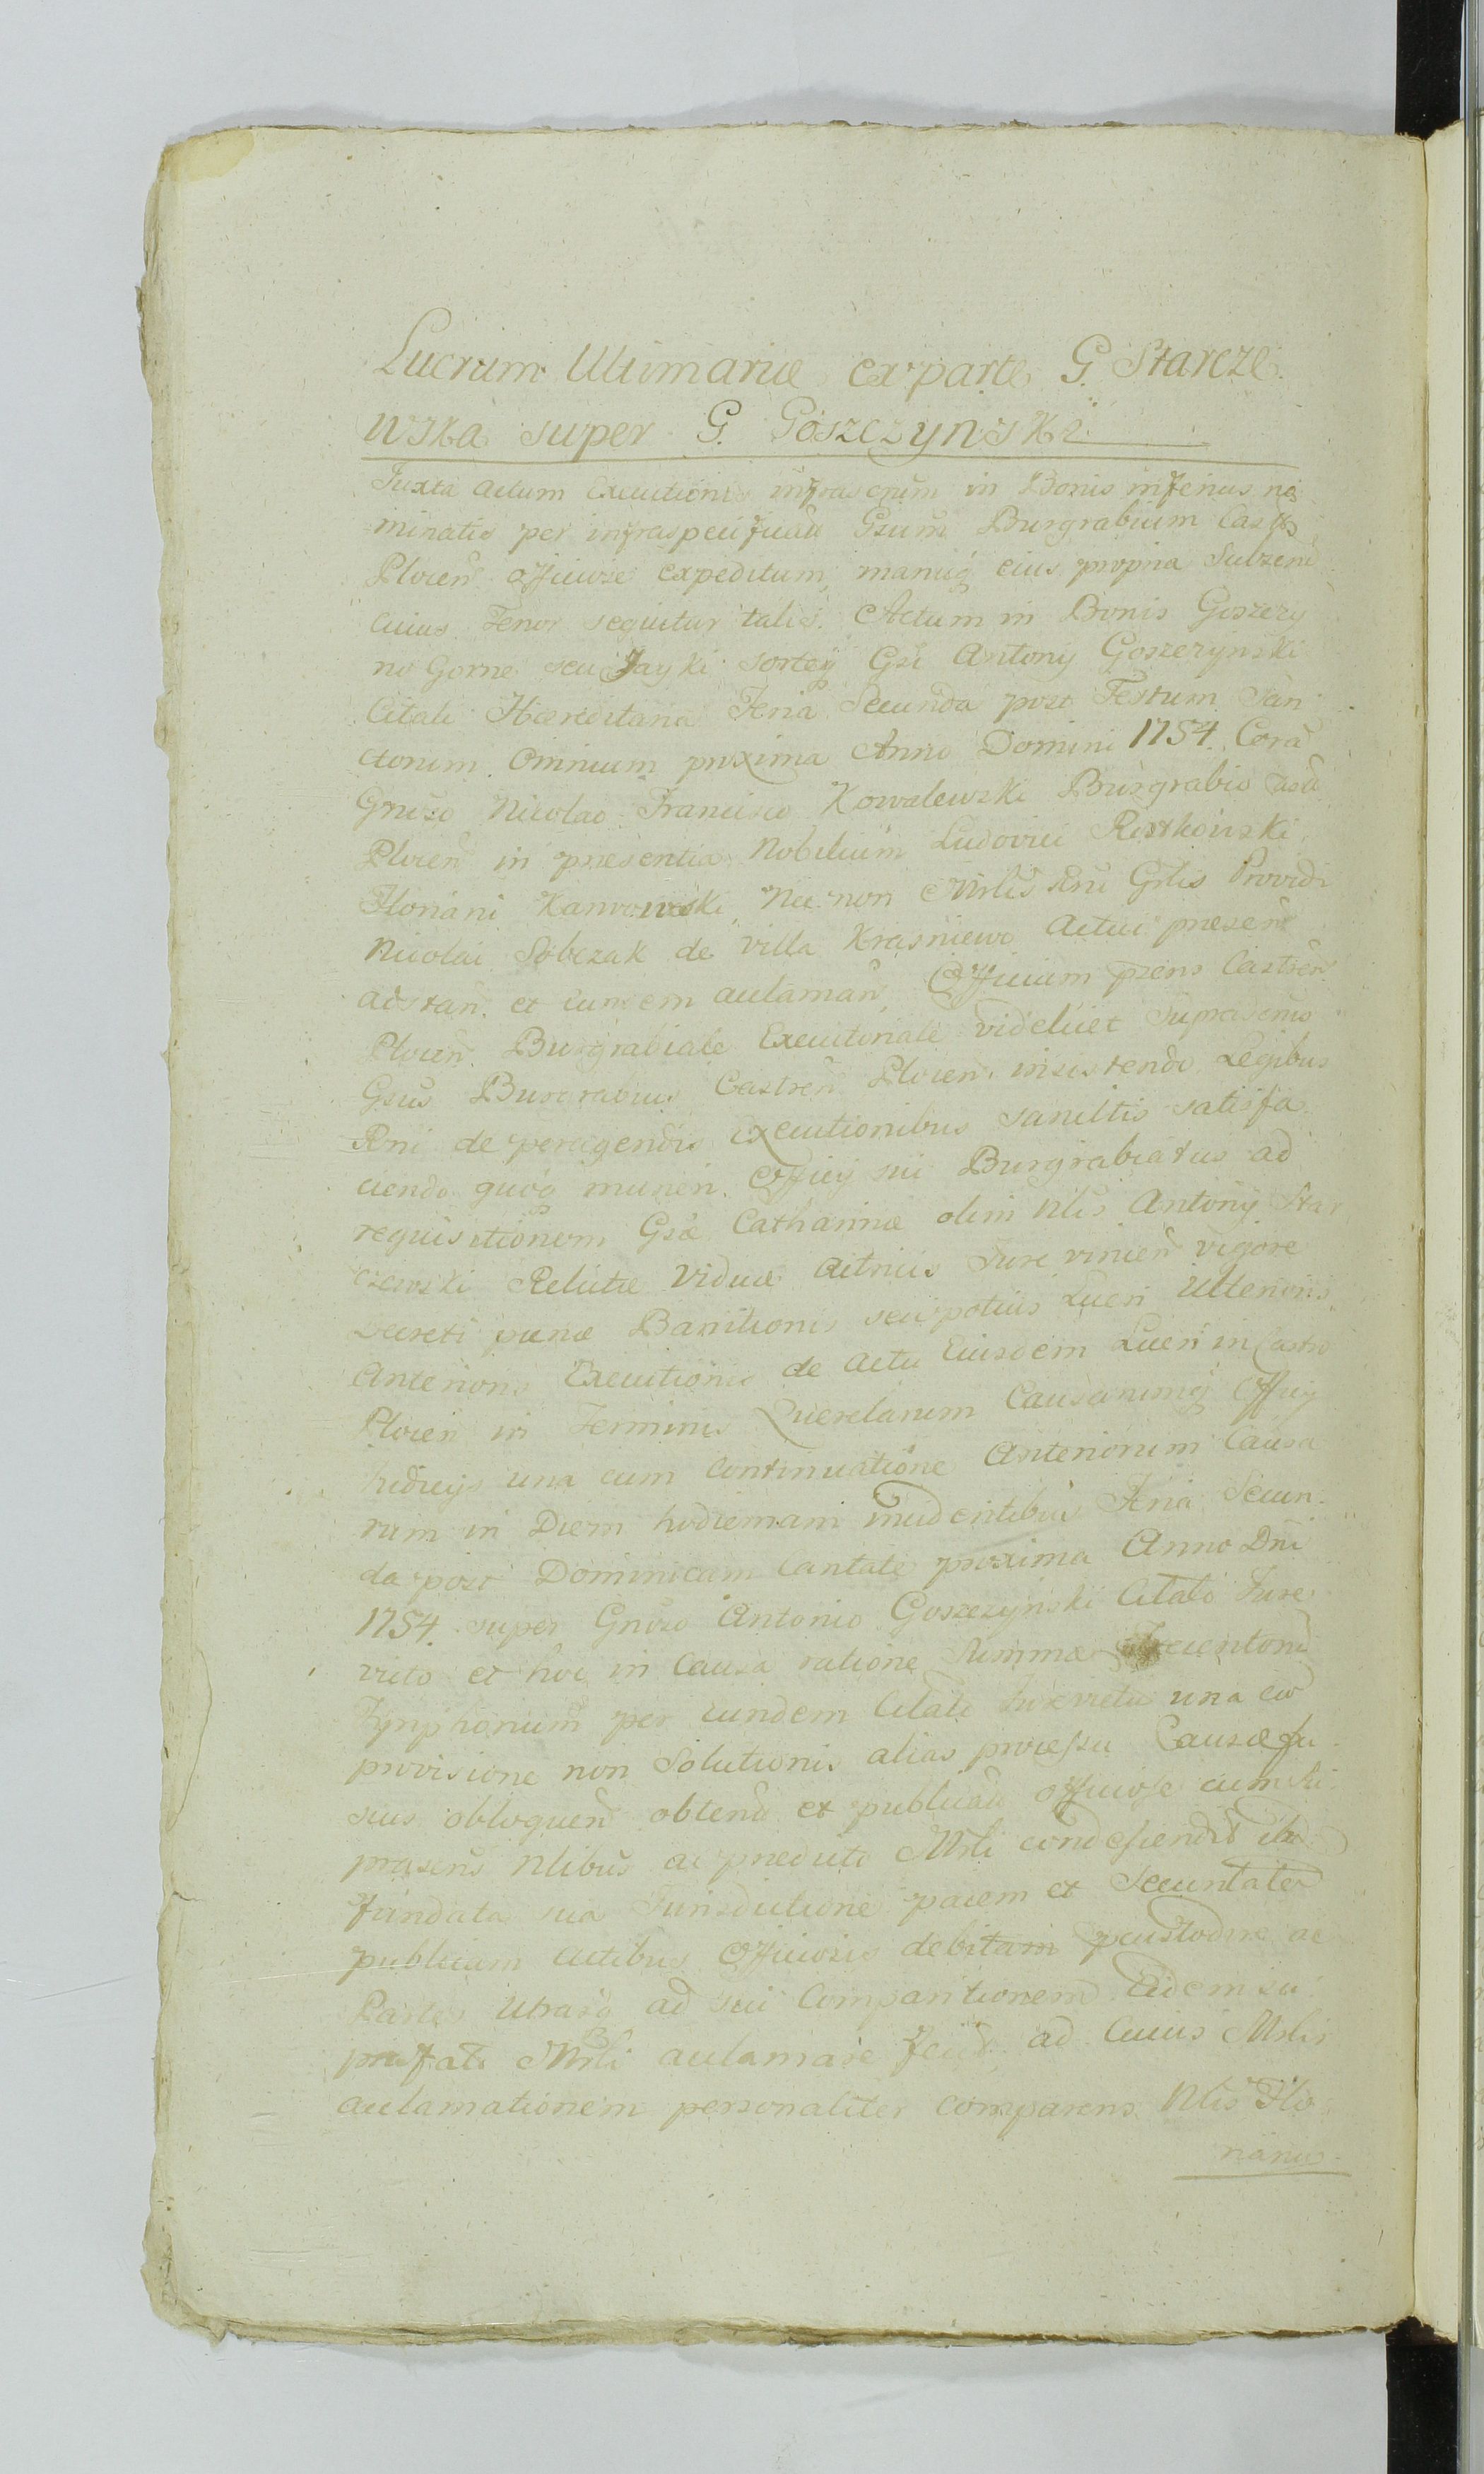 Lucrum Ultimariæ ex parte G. Starcze
wska super G. Goszczynski
Juxta actum Executionis infrascrum in Bonis inferius no
minatis per infraspecificatu Gsum Burgrabium Castr
Plocen officiose expeditum, manuq eius propria Subscrm
cuius Tenor sequitur talis. Actum in Bonis Goszczy
no Gorne seu Jayki sorteq Gsi Antonij Goszczynski
Citati Hæreditaria Feria Secunda post Festum San
ctorum Omnium proxima Anno Domini 1754. Cora
Gnroso Nicolao Francisco Kowalewski Burgrabio
Plocen in præsentia Nobilium Ludovici Rostkowski
Floriani Karwowski, Nec non Mrlis Rni Gnlis Providi
Nicolai Sobczak de villa Krasniewo Actui præsen
adstan. et eundem acclaman, Officium præns Castren
Plocen Burgrabiale Executoriale videlicet Suprascrus
Gsus Burgrabius Castren Plocen. insistendo Legibus
Rni de peragendis executionibus sancitis satisfa
ciendo quoq muneri Officij sui Burgrabiatus ad
requisitionem Gsæ Catharinæ olim Nlis Antonij Star
czewski Relictæ Viduæ Actricis Jure vincen vigore
Decreti pænæ Bannitionis seu potius Lucri Ulterioris
Anterioris Executionis de Actu Eiusdem Lucri in Castro
Plocen in Terminis Querelarum Causarumq Officij
una cum Continuatione Anteriorum Causa
rum in Diem hodiernam incidentibus Feria Secun
da post Dominicam Cantate proxima Anno Dni
1754. super Gnroso Antonio Goszczynski Citato Jure
victo et hoc in Causa ratione Summæ
Tynphorum per eundem Citatu Jurevictu una cu
provisione non Solutionis alias processu Causæ fu
sius obloquen obten et publicat officiose cum Su
prascris Nlibus ac prædicto Mrli condescendit ibiq
fundata sua Jurisdictione pacem et Securitatem
publicam actibus Officiosis debitam pcustodire ac
Partes Utrasq ad sui Comparitionem eidem su
præfati Mrli acclamare fecit. ad Cuius Mrlis
acclamationem personaliter comparens Nlis Flo
rianus